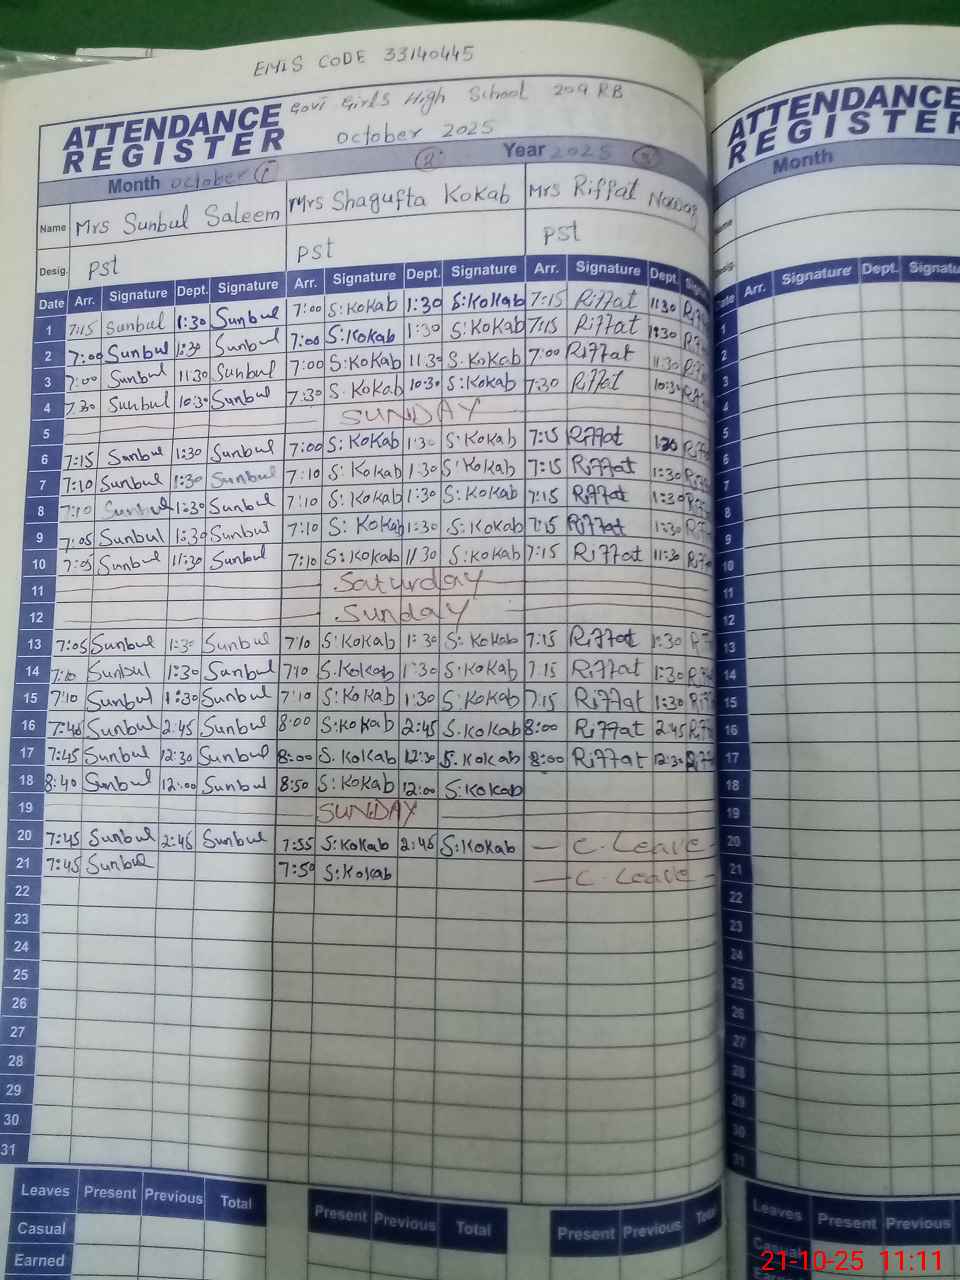 EMIS CODE 33140445
ATTENDANCE REGISTER Govt Girls High School 209 RB
October 2025
Month October 1 2 Year 2025 3
Name Mrs Sunbul Saleem Mrs Shagufta Kokab Mrs Riffat Nawaz
Desig. PST PST PST
Date Arr. Signature Dept. Signature Arr. Signature Dept. Signature Arr. Signature Dept.
1 7:15 Sunbul 1:30 Sunbul 7:00 S:Kokab 1:30 S:Kokab 7:15 Riffat 1:30
2 7:00 Sunbul 1:30 Sunbul 7:00 S:Kokab 1:30 S:Kokab 7:15 Riffat 1:30
3 7:00 Sunbul 11:30 Sunbul 7:00 S:Kokab 11:30 S:Kokab 7:00 Riffat 11:30
4 7:30 Sunbul 10:30 Sunbul 7:30 S.Kokab 10:30 S:Kokab 7:30 Riffat 10:30
5 SUNDAY
6 7:15 Sunbul 1:30 Sunbul 7:00 S:Kokab 1:30 S:Kokab 7:15 Riffat 1:30
7 7:10 Sunbul 1:30 Sunbul 7:10 S:Kokab 1:30 S:Kokab 7:15 Riffat 1:30
8 7:10 Sunbul 1:30 Sunbul 7:10 S:Kokab 1:30 S:Kokab 7:15 Riffat 1:30
9 7:05 Sunbul 1:30 Sunbul 7:10 S:Kokab 1:30 S:Kokab 7:15 Riffat 1:30
10 7:05 Sunbul 11:30 Sunbul 7:10 S:Kokab 11:30 S:Kokab 7:15 Riffat 11:30
11 Saturday
12 Sunday
13 7:05 Sunbul 1:30 Sunbul 7:10 S:Kokab 1:30 S:Kokab 7:15 Riffat 1:30
14 7:10 Sunbul 1:30 Sunbul 7:10 S.Kokab 1:30 S:Kokab 7:15 Riffat 1:30
15 7:10 Sunbul 1:30 Sunbul 7:10 S:Kokab 1:30 S:Kokab 7:15 Riffat 1:30
16 7:46 Sunbul 2:45 Sunbul 8:00 S:Kokab 2:45 S.Kokab 8:00 Riffat 2:45
17 7:45 Sunbul 12:30 Sunbul 8:00 S.Kokab 12:30 S.Kokab 8:00 Riffat 12:30
18 8:40 Sunbul 12:00 Sunbul 8:50 S:Kokab 12:00 S:Kokab
19 SUNDAY
20 7:45 Sunbul 2:46 Sunbul 7:55 S:Kokab 2:46 S:Kokab C. Leave
21 7:45 Sunbul 7:50 S:Kokab C. Leave
22
23
24
25
26
27
28
29
30
31
Leaves Present Previous Total Present Previous Total Present Previous Total
Casual
Earned
ATTENDANCE
REGISTER
Month
Arr. Signature Dept.
1
2
3
4
5
6
7
8
9
10
11
12
13
14
15
16
17
18
19
20
21
22
23
24
25
26
27
28
29
30
31
Leaves Present Previous
Casual
21-10-25 11:11